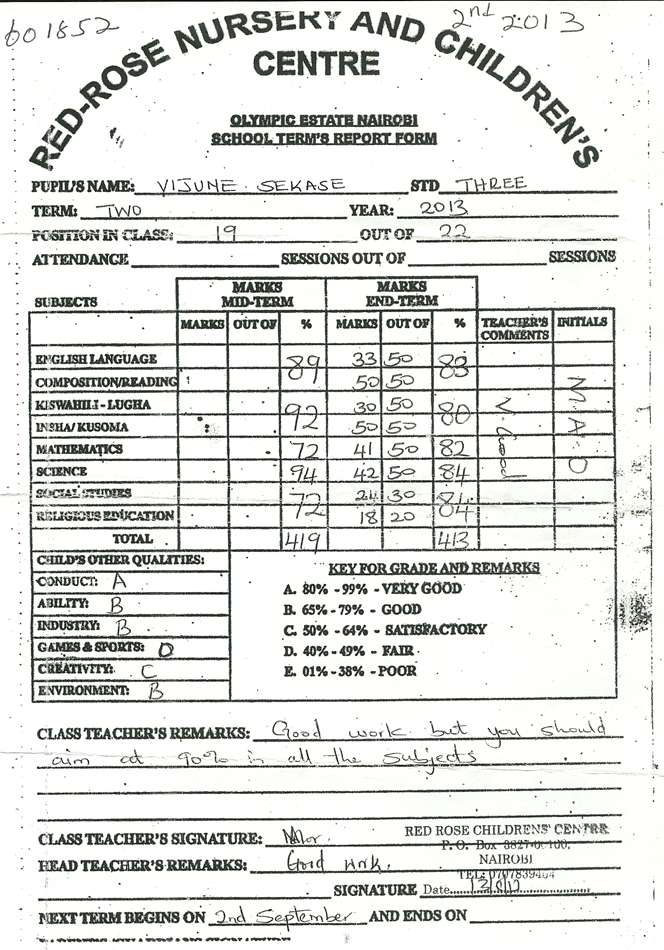 601852
2nd 2013
RED-ROSE NURSERY AND CHILDREN'S
CENTRE
OLYMPIC ESTATE NAIROBI
SCHOOL TERM'S REPORT FORM
PUPIL'S NAME: VIJUNE SEKASE STD THREE
TERM: TWO YEAR: 2013
POSITION IN CLASS: 19 OUT OF 22
ATTENDANCE SESSIONS OUT OF SESSIONS
SUBJECTS MARKS MID-TERM MARKS END-TERM
MARKS OUT OF % MARKS OUT OF % TEACHER'S COMMENTS INITIALS
ENGLISH LANGUAGE 89 33 50 83
COMPOSITION/READING 50 50
KISWAHILI - LUGHA 92 30 50 80 V. Good M.A.O
INSHA/ KUSOMA 50 50
MATHEMATICS 72 41 50 82
SCIENCE 94 42 50 84
SOCIAL STUDIES 72 24 30 84
RELIGIOUS EDUCATION 18 20
TOTAL 419 413
CHILD'S OTHER QUALITIES:
CONDUCT: A
ABILITY: B
INDUSTRY: B
GAMES & SPORTS: D
CREATIVITY: C
ENVIRONMENT: B
KEY FOR GRADE AND REMARKS
A. 80% - 99% - VERY GOOD
B. 65% - 79% - GOOD
C. 50% - 64% - SATISFACTORY
D. 40% - 49% - FAIR
E. 01% - 38% - POOR
CLASS TEACHER'S REMARKS: Good work but you should
aim at 90% in all the subjects
CLASS TEACHER'S SIGNATURE:
RED ROSE CHILDRENS' CENTRE
P. O. Box
NAIROBI
TEL:
HEAD TEACHER'S REMARKS: Good work.
SIGNATURE Date
NEXT TERM BEGINS ON 2nd September AND ENDS ON